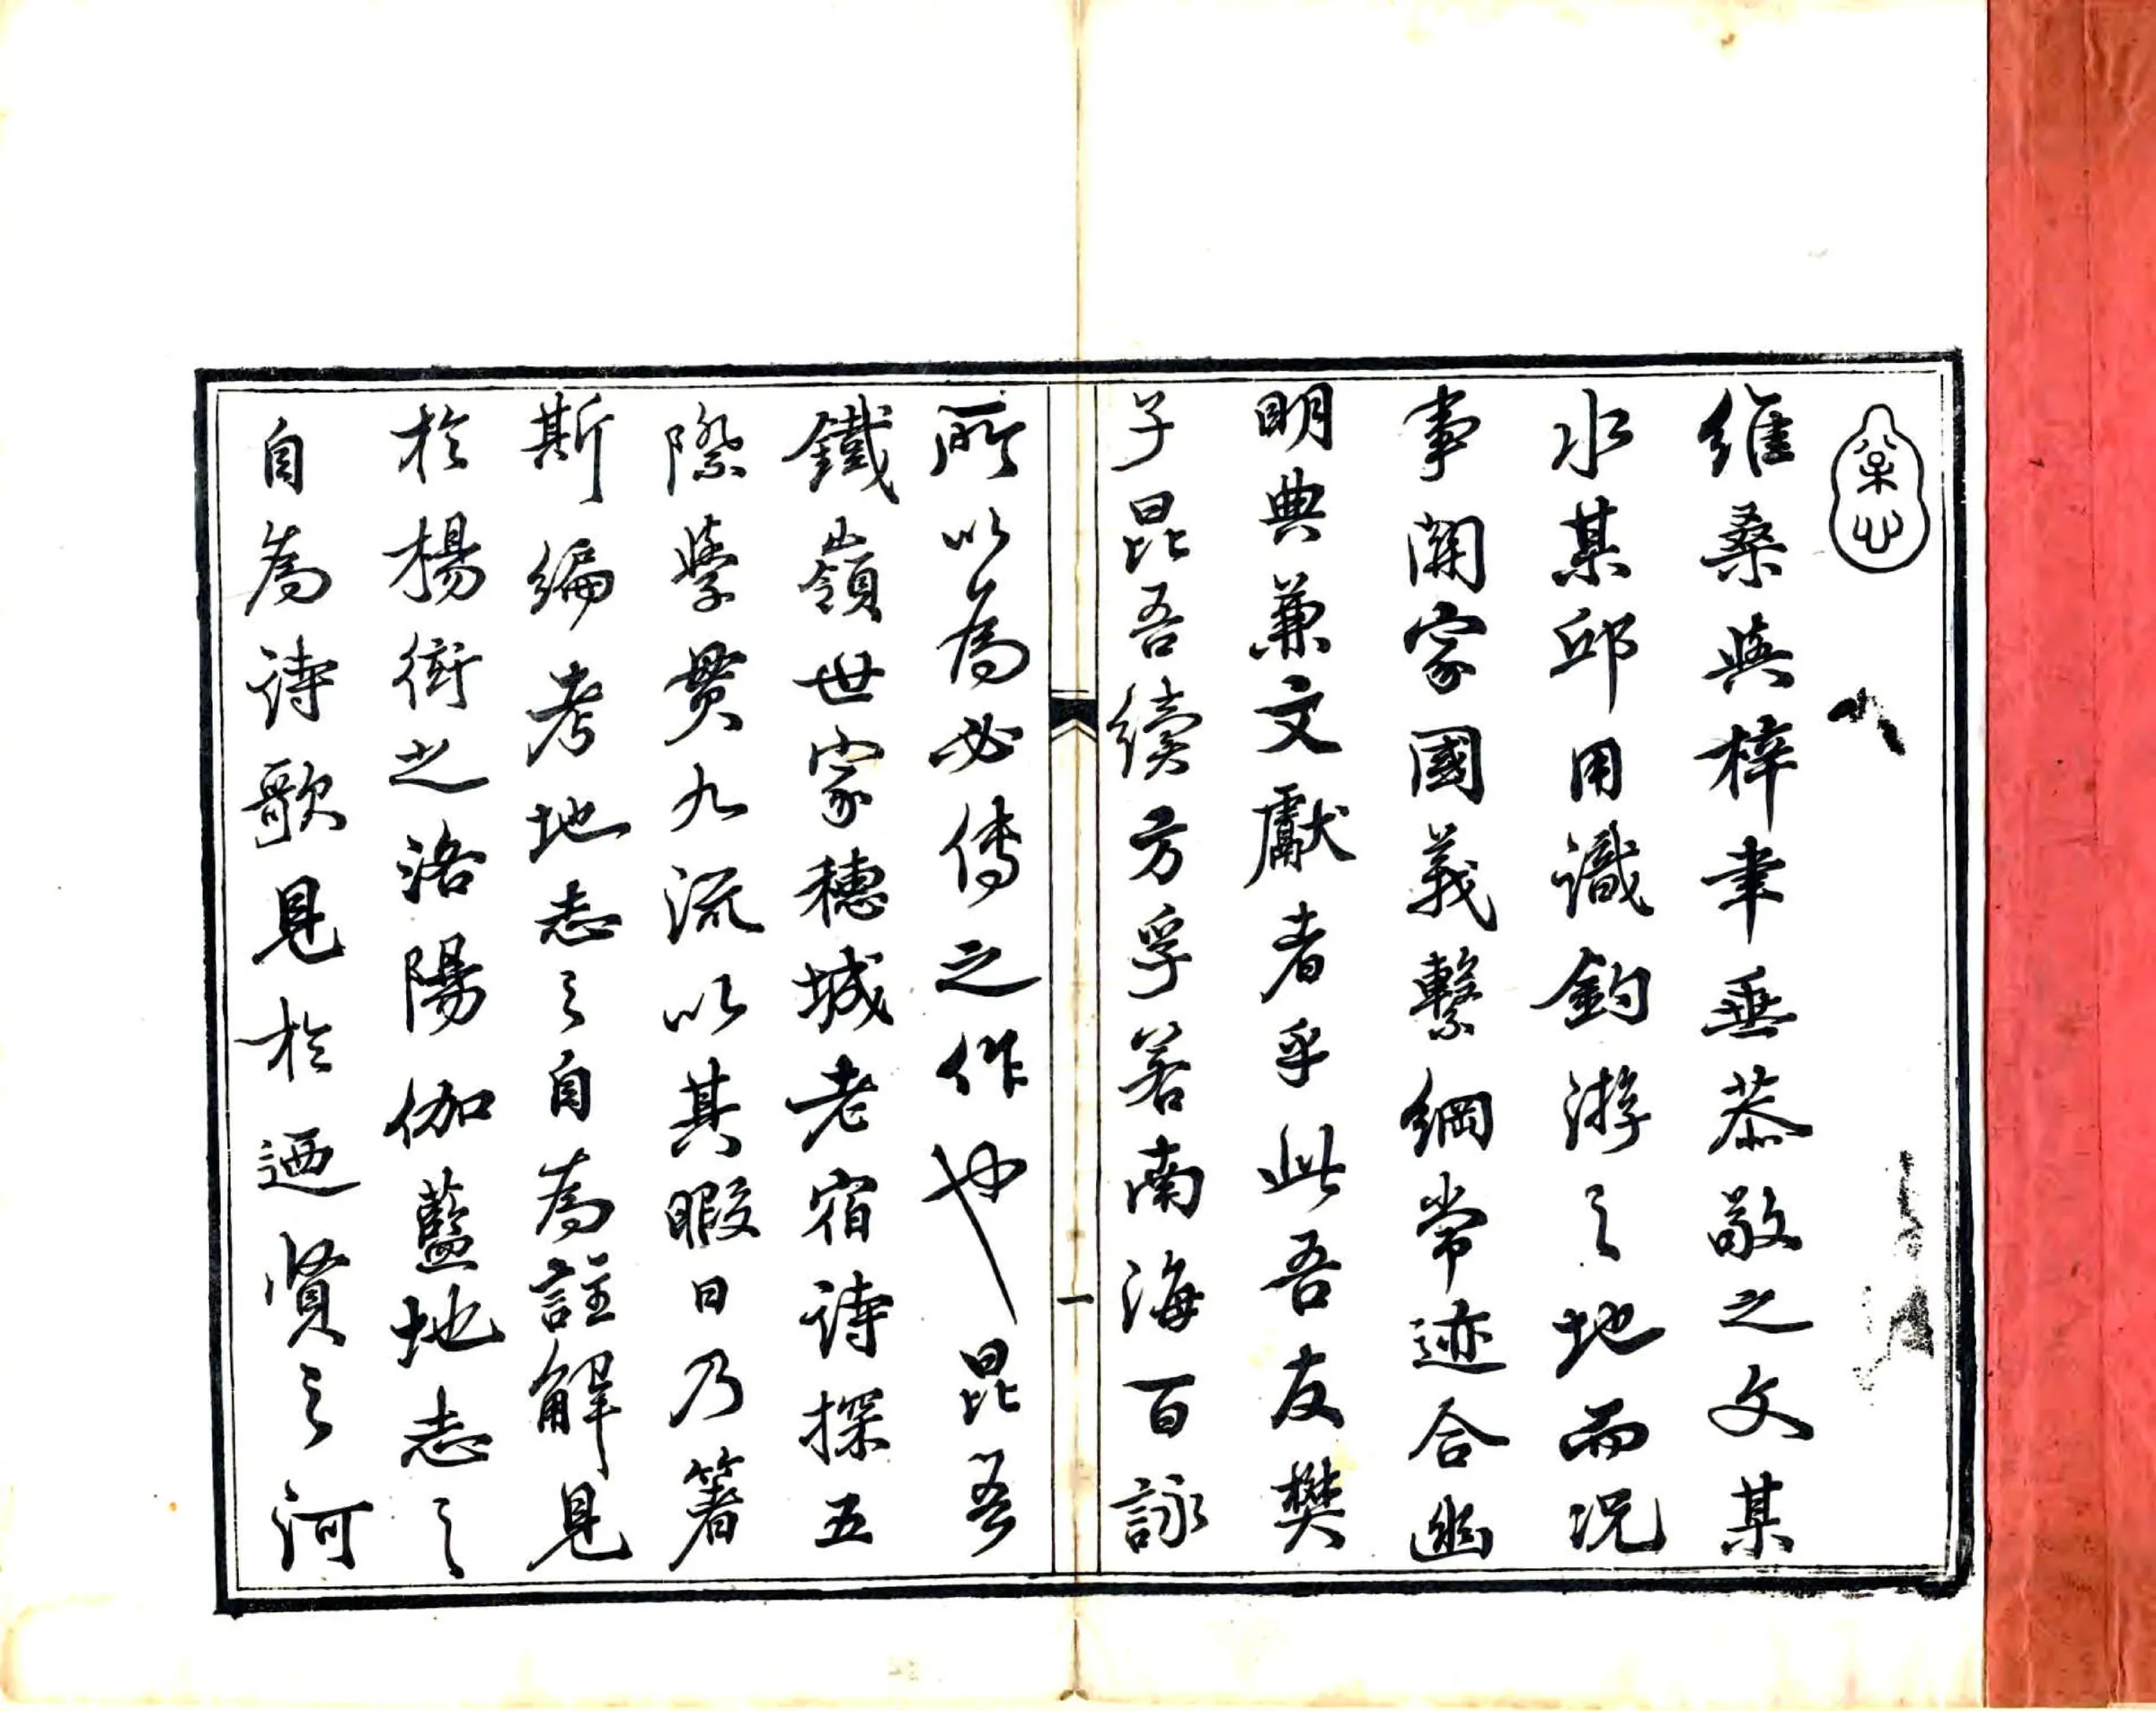 維桑與梓聿垂恭敬之文某
水某邱用識釣游之地而況
事關家國義繫綱常迹合幽
明典兼文獻者乎此吾友樊
子昆吾續方孚若南海百詠
一
所以為必傳之作也昆吾
鐵嶺世家穗城老宿詩探五
際學貫九流以其暇日乃箸
斯編考地志之自為註解見
於楊衒之洛陽伽藍地志之
自為詩歌見於迺賢之河